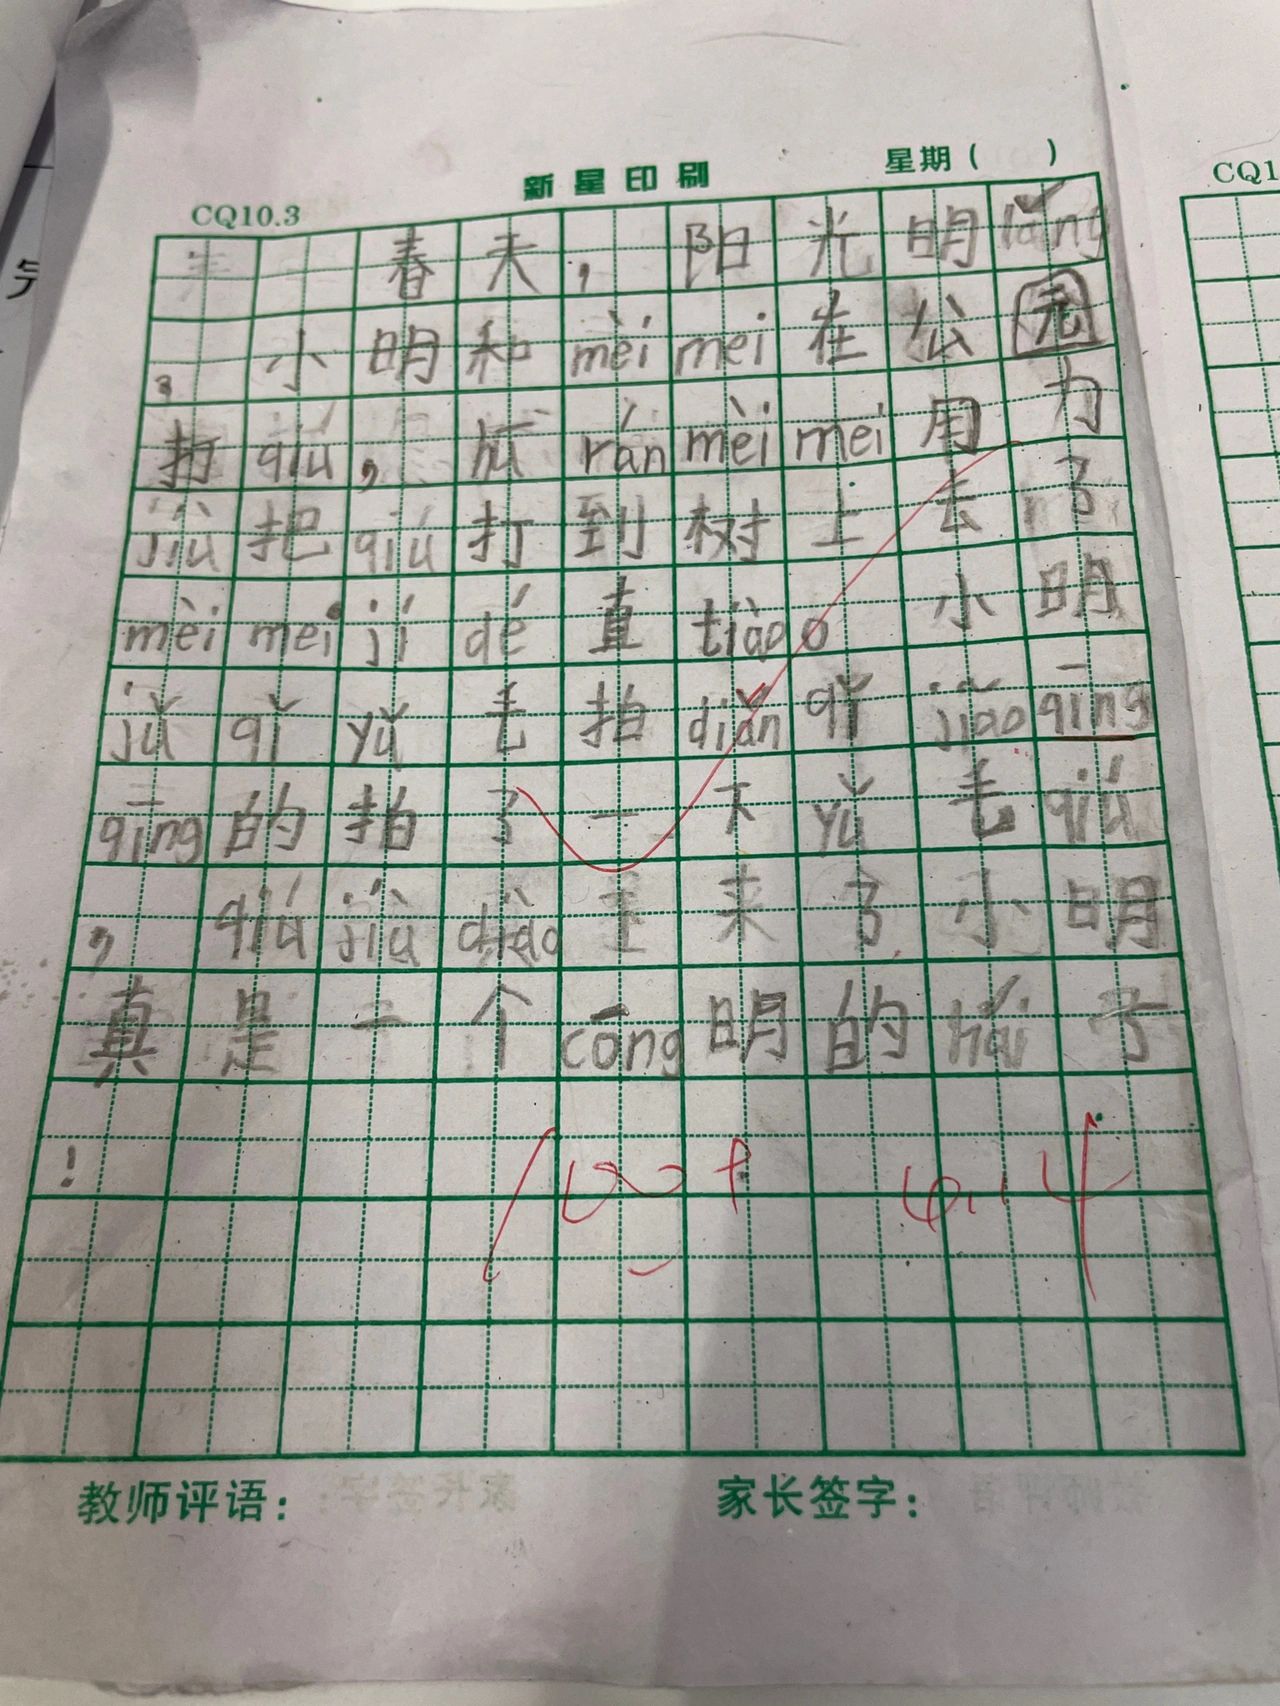 CQ10.3 新星印刷 星期（ ）
CQ1
春天，阳光明lǎng
，小明和mèi mei在公园
打qiú，hū rán mèi mei用力
jiù把qiú打到树上去了
mèi mei jí dé直tiào 小明
jǔ qǐ yǔ毛拍diǎn qǐ jiǎo qīng
qīng的拍了一下yǔ毛qiú
，qiú jiù diào 来了小明
真是一个cōng明的hái子
！
100+ 6.14
教师评语： 家长签字：